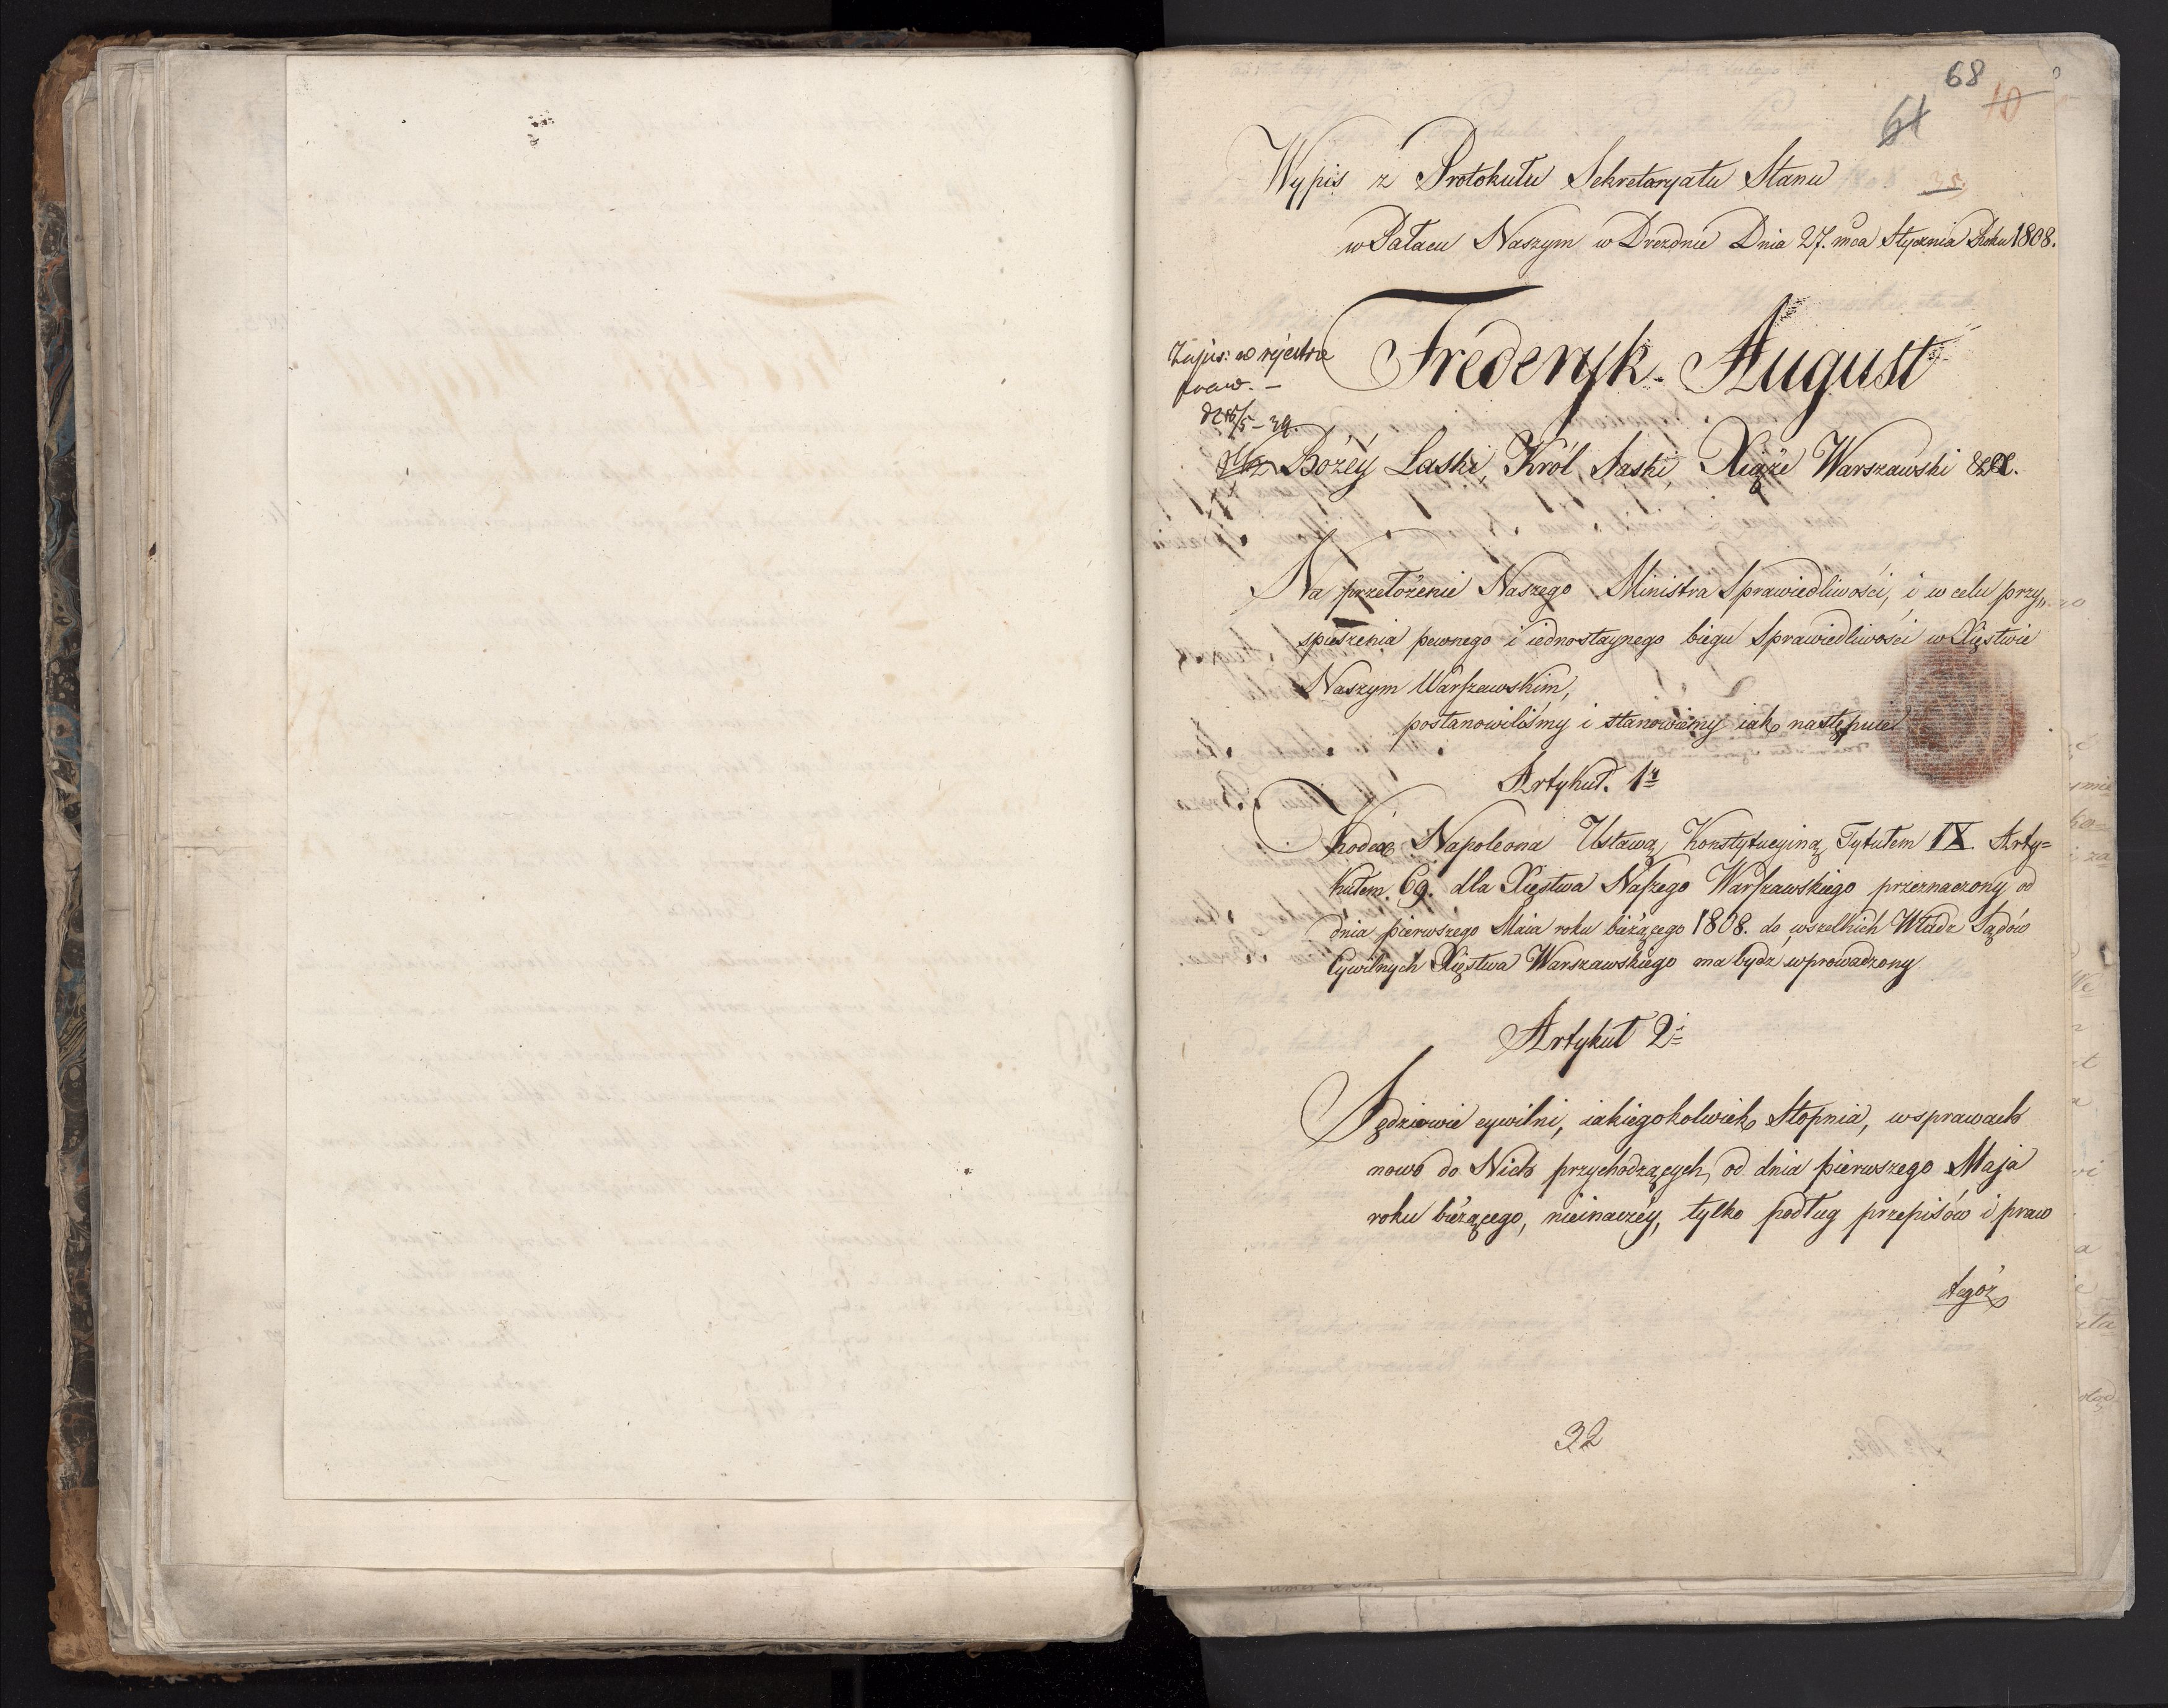 68
61
10
Wypis z Protokułu Sekretaryatu Stanu
25
w Pałacu Naszym w Dreznie Dnia 27. mca Stycznia Roku 1808.
Frederyk August
Zapis: w rejestrze
praw. —
z Bożéy Łaski, Król Saski, Xiąże Warszawski &&.
Na przełożenie Naszego Ministra Sprawiedliwości, i w celu przy„
spieszenia pewnego i iednostaynego biegu Sprawiedliwości w Xięstwie
Naszym Warszawskim,
postanowiliśmy i stanowiemy iak następuie
Artykuł. 1y
Kodex Napoleona Ustawą Konstytucyiną Tytułem IX. Arty=
kułem 69. dla Xięstwa Naszego Warszawskiego przeznaczony od
dnia pierwszego Maia roku bieżącego 1808. do wszelkich Władz Sądów
Cywilnych Xięstwa Warszawskiego ma bydź wprowadzony
Artykuł 2i
Sędziowie cywilni, iakiegokolwiek Stopnia, w sprawach
nowo do Nich przychodzących, od dnia pierwszego Maja
roku bieżącego, nieinaczéy, tylko podług przepisów i praw
tegóż
32